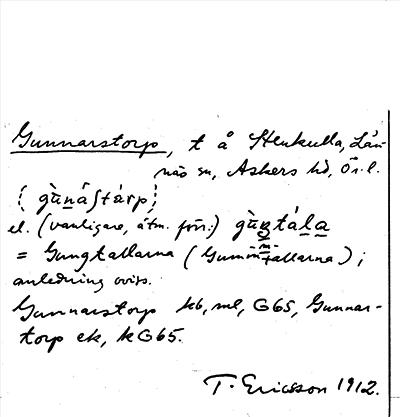 Gunnarstorp, t å Stenkulla, Län-
näs sn, Askers hd, Ör. l.
el. (vanligare, åtm. förr:)
= Gungtallarna (Gummitallarna);
anledning oviss.
Gunnarstorp kb, ml, G65, Gunnar-
torp ek, k G65.
T. Ericsson 1912.